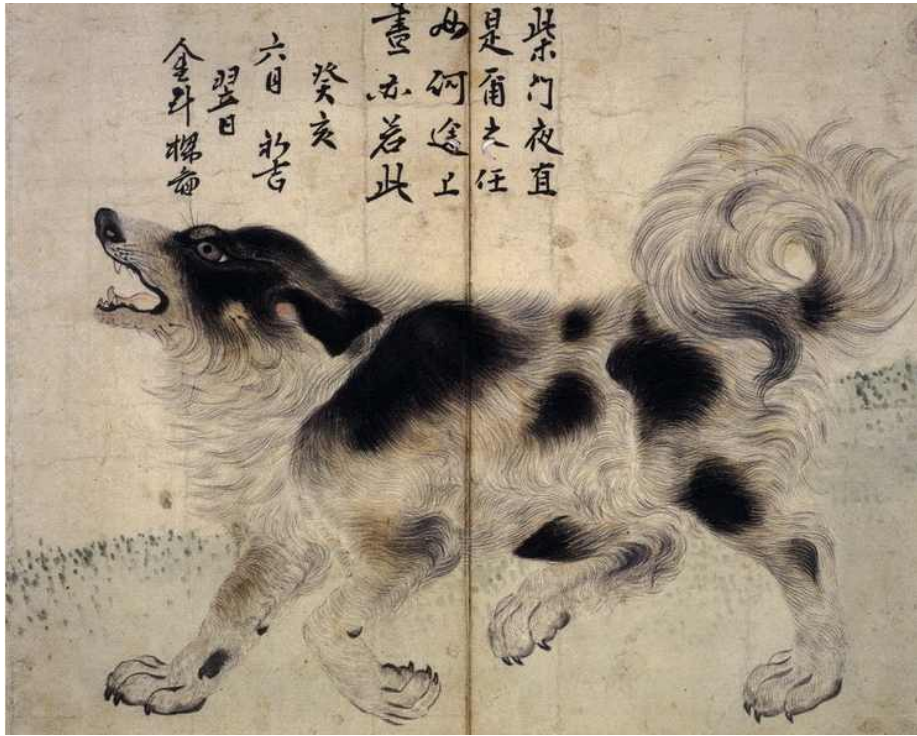 柴門夜直
是爾之任
如何途上
晝亦若此
癸亥
六月初吉
翌日
金斗樑